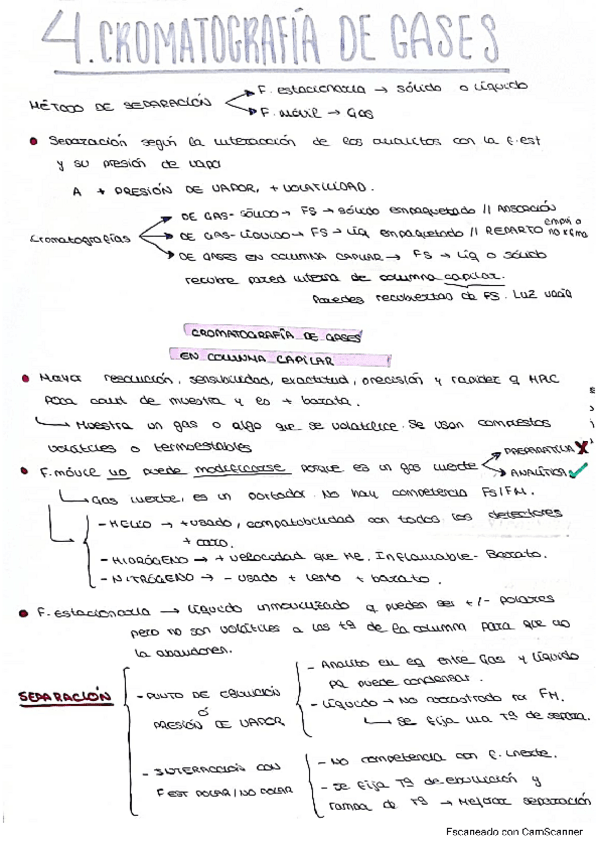 4. CROMATOGRAFÍA DE GASES
MÉTODO DE SEPARACIÓN
F. estacionaria → sólido o líquido
F. móvil → Gas
• Separación según la interacción de los analitos con la f.est
y su presión de vapor
A + PRESIÓN DE VAPOR, + VOLATILIDAD.
Cromatografías
DE GAS-SÓLIDO → FS → sólido empaquetado // ADSORCIÓN
DE GAS-LÍQUIDO → FS → Liq empaquetado // REPARTO
DE GASES EN COLUMNA CAPILAR → FS → Líq o sólido
recubre pared interna de columna capilar.
Paredes recubiertas de FS. Luz vacía
CROMATOGRAFÍA DE GASES
EN COLUMNA CAPILAR
• Mayor resolución, sensibilidad, exactitud, precisión y rapidez q HPLC
para cant de muestra y es + barata.
Muestra un gas o algo que se volatilice. Se usan compuestos
volátiles o termoestables
• F. móvil no puede modificarse porque es un gas inerte
PREPARATIVA X
ANALÍTICA ✓
Gas inerte, es un portador. No hay competencia FS/FM.
- HELIO → + usado, compatibilidad con todos los detectores
+ caro.
- HIDRÓGENO → + velocidad que He. Inflamable. Barato.
- NITRÓGENO → - usado + lento + barato.
• F. estacionaria → líquido inmovilizado q pueden ser +/- polares
pero no son volátiles a las tª de la columna para que no
la abandonen.
SEPARACIÓN
- PUNTO DE EBULLICIÓN
Ó
PRESIÓN DE VAPOR
- Analito en eq entre Gas y líquido
pq puede condensar.
- Líquido → No arrastrado por FM.
Se fija una Tª de separa.
- INTERACCIÓN CON
F EST POLAR/NO POLAR
- NO competencia con f. inerte.
- Se fija Tª de ebullición y
rampa de Tª → Mejorar separación
Escaneado con CamScanner